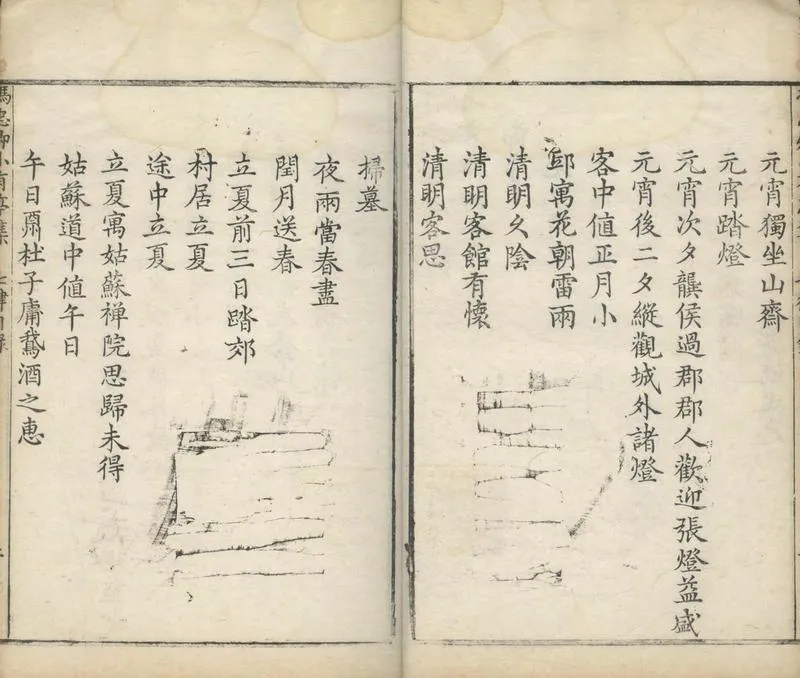 元宵獨坐山齋
元宵踏燈
元宵次夕龔侯過郡郡人歡迎張燈益盛
元宵後二夕縱觀城外諸燈
客中値正月小
邸寓花朝雷雨
清明久陰
清明客館有懷
清明客思
掃墓
夜雨當春盡
閏月送春
立夏前三日踏郊
村居立夏
途中立夏
立夏寓姑蘇禅院思歸未得
姑蘇道中値午日
午日鼐杜子庸鵞酒之惠
小有亭集
七律目録